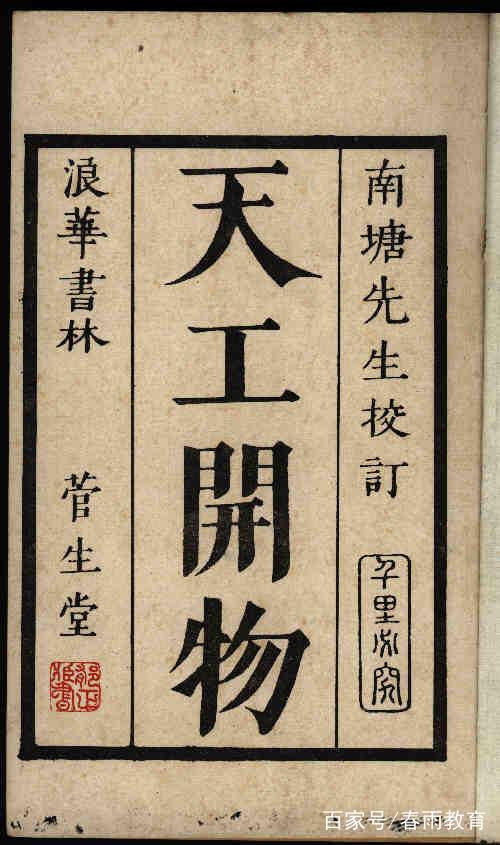 南塘先生校訂
千里必究
天工開物
浪華書林 菅生堂
百家号/春雨教育